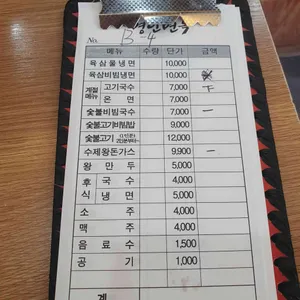 경난면옥
No. B-4
메뉴 수량 단가 금액
육삼물냉면 10,000
육삼비빔냉면 10,000
계절메뉴 고기국수 7,000 下
온면 7,000
숯불비빔국수 7,000 一
숯불고기비빔밥 9,000
숯불고기 12,000
수제왕돈가스 9,900 一
왕만두 5,000
후식 국수 4,000
냉면 5,000
소주 4,000
맥주 4,000
음료수 1,500
공기 1,000
계